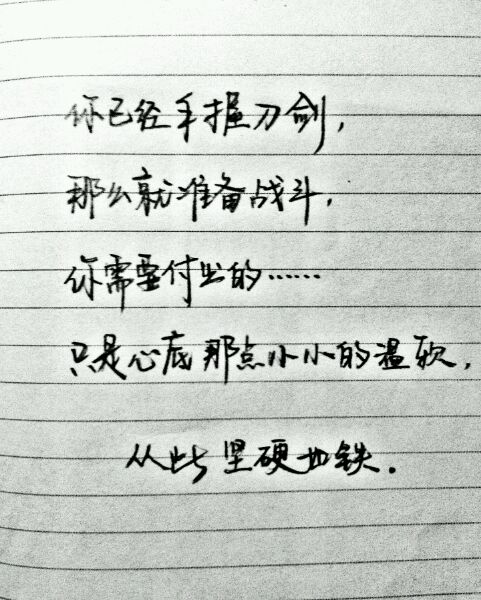 你已经手握刀剑，
那么就准备战斗，
你需要付出的……
只是心底那点小小的温软，
从此坚硬如铁．